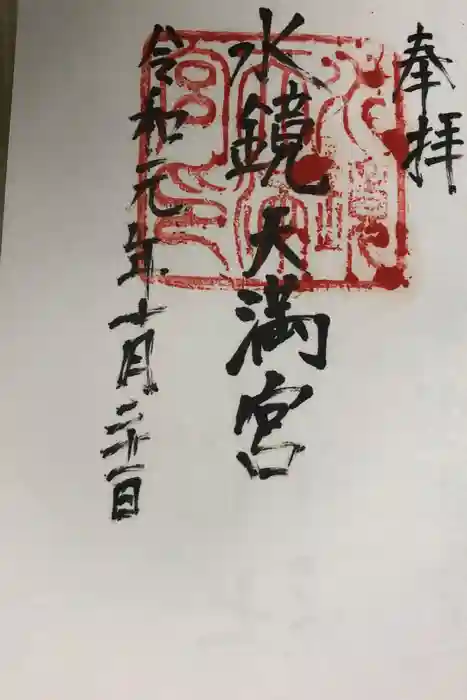 奉拝
水鏡天満宮
令和元年十月二十一日